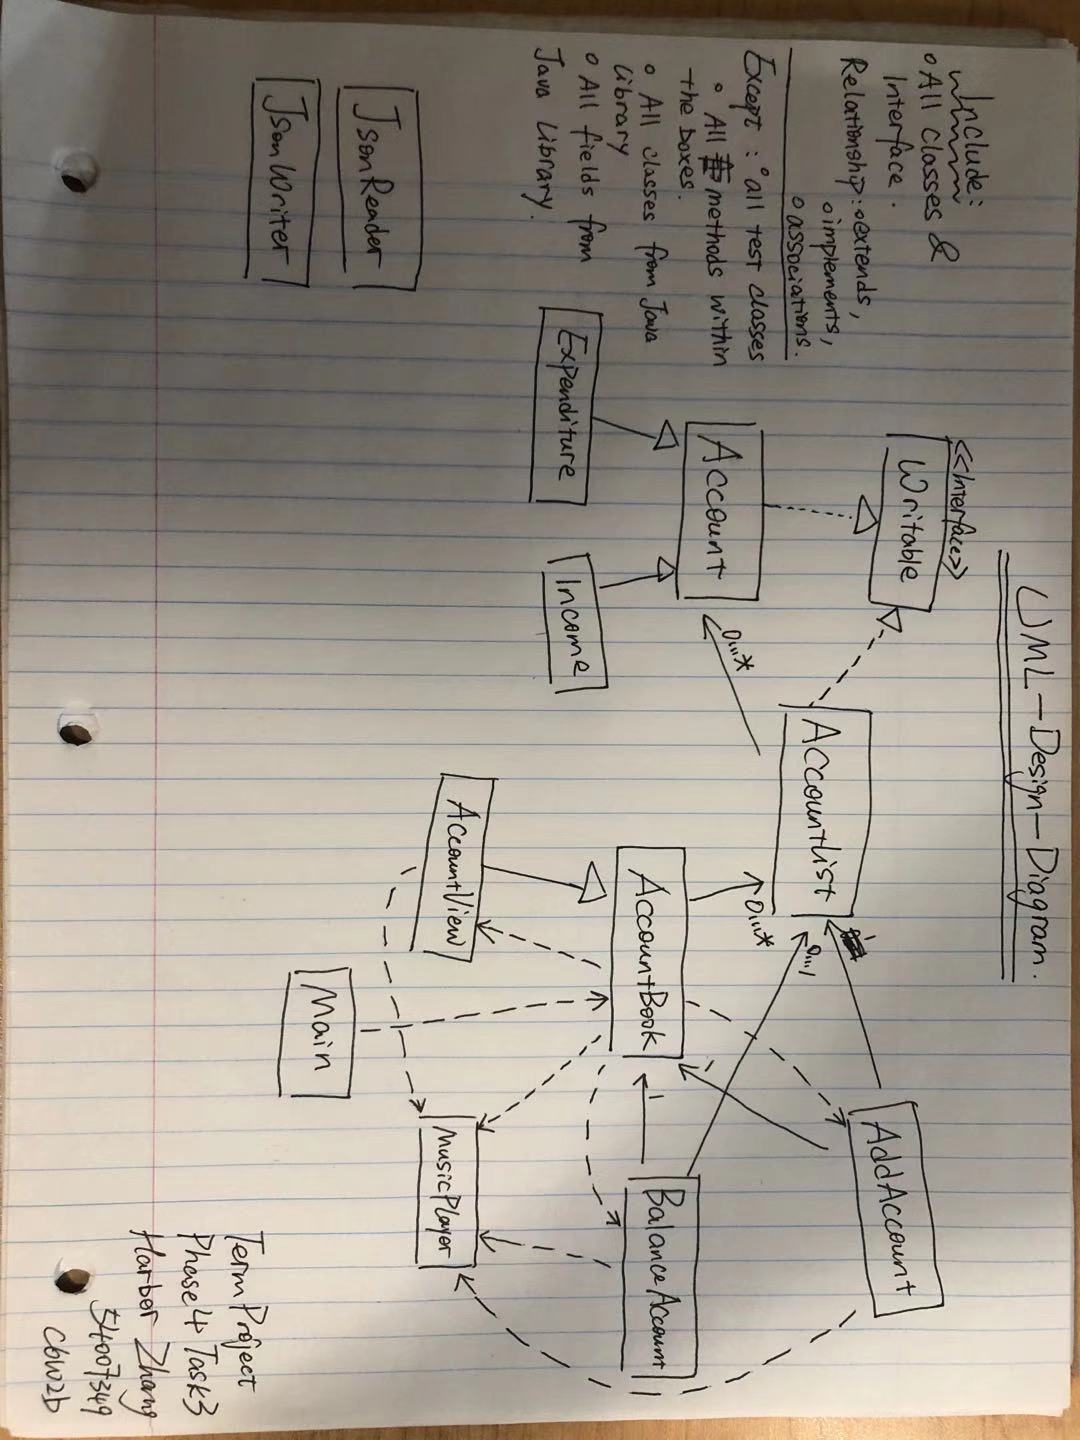 UML-Design-Diagram.
Include:
All classes &
Interface.
Relationship: extends,
implements,
associations.
Except: all test classes
All methods within
the boxes.
All classes from Java
Library
All fields from
Java Library.
<<Interface>>
Writable
Accountlist
AddAccount
1
0...1
0...*
0...*
Account
AccountBook
1
BalanceAccount
Expenditure
Income
AccountView
MusicPlayer
Main
JsonReader
JsonWriter
Term Project
Phase4 Task3
Harbor Zhang
54007349
c6w2b